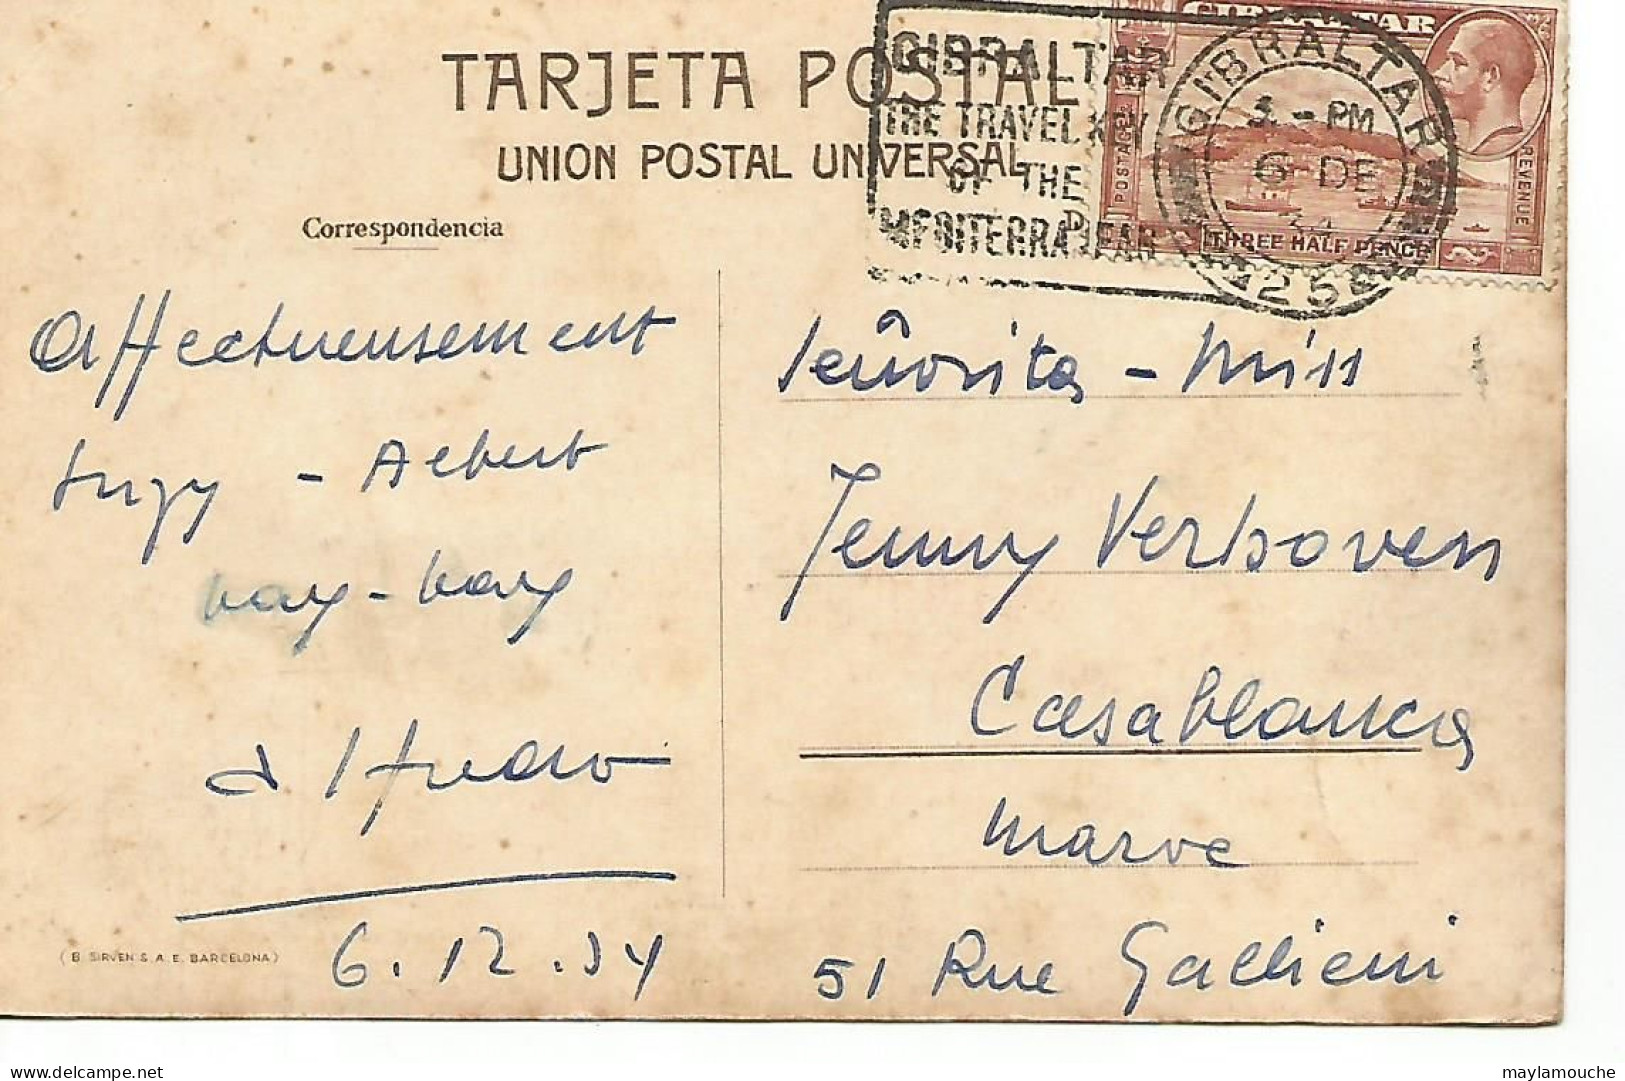 TARJETA POSTAL
UNION POSTAL UNIVERSAL
Correspondencia
GIBRALTAR
THE TRAVEL KEY
OF THE
MEDITERRANEAN
GIBRALTAR
POSTAGE &
REVENUE
THREE HALF PENCE
GIBRALTAR
- PM
6 DE
34
254
Affectueusement
Suzy - Albert
6.12.34
(B. SIRVEN S.A.E. BARCELONA)
Señorita - Miss
Jenny Verhoven
Casablanca
Maroc
51 Rue Gallieni
delcampe.net
maylamouche